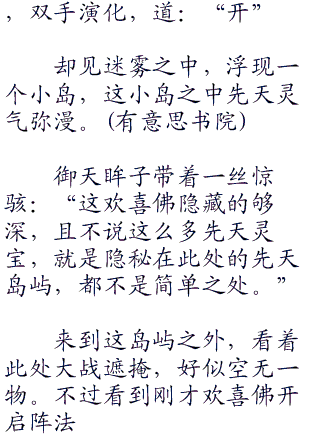 ，双手演化，道：“开”
却见迷雾之中，浮现一
个小岛，这小岛之中先天灵
气弥漫。(有意思书院)
御天眸子带着一丝惊
骇：“这欢喜佛隐藏的够
深，且不说这么多先天灵
宝，就是隐秘在此处的先天
岛屿，都不是简单之处。”
来到这岛屿之外，看着
此处大战遮掩，好似空无一
物。不过看到刚才欢喜佛开
启阵法